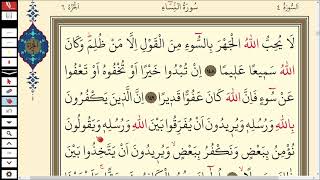 اَلسُّورَةُ ٤ سُورَةُ النِّسَاءِ اَلْجُزْءُ ٦
لَا يُحِبُّ اللّٰهُ الْجَهْرَ بِالسُّوءِ مِنَ الْقَوْلِ اِلَّا مَنْ ظُلِمَ وَكَانَ
اللّٰهُ سَمِيعًا عَلِيمًا ﴿١٤٨﴾ اِنْ تُبْدُوا خَيْرًا اَوْ تُخْفُوهُ اَوْ تَعْفُوا
عَنْ سُوءٍ فَاِنَّ اللّٰهَ كَانَ عَفُوًّا قَدِيرًا ﴿١٤٩﴾ اِنَّ الَّذِينَ يَكْفُرُونَ
بِاللّٰهِ وَرُسُلِهِ وَيُرِيدُونَ اَنْ يُفَرِّقُوا بَيْنَ اللّٰهِ وَرُسُلِهِ وَيَقُولُونَ
نُؤْمِنُ بِبَعْضٍ وَنَكْفُرُ بِبَعْضٍ وَيُرِيدُونَ اَنْ يَتَّخِذُوا بَيْنَ